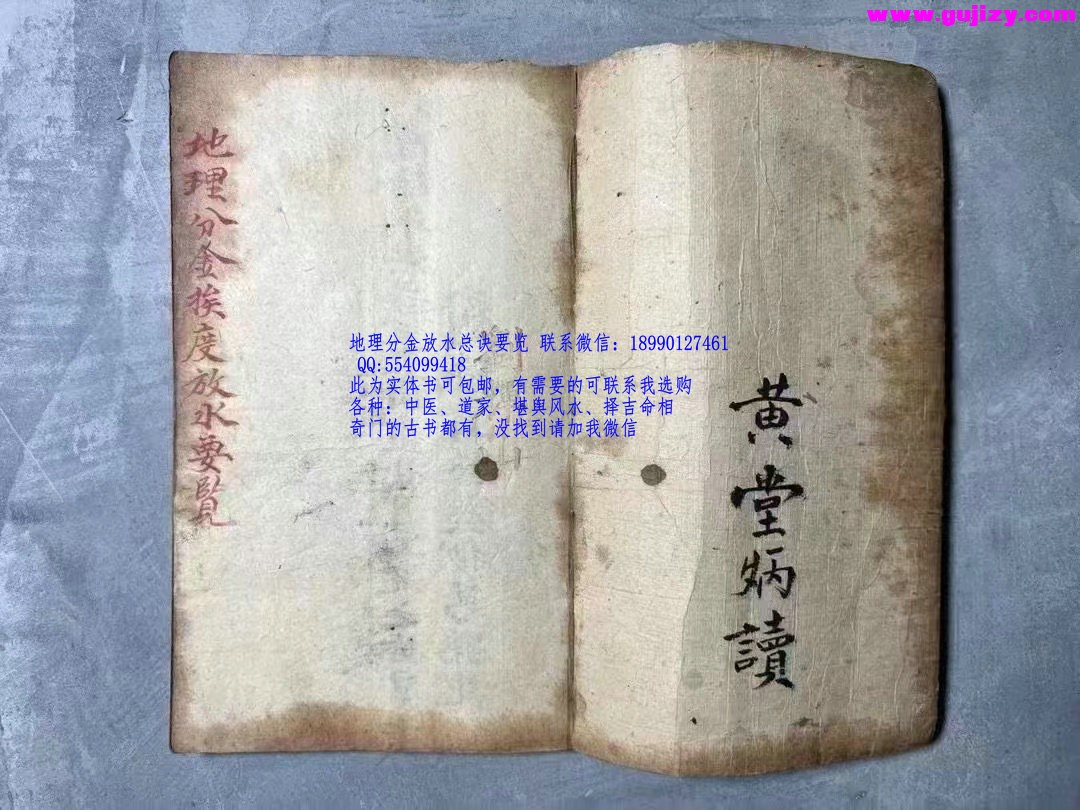 www.gujizy.com
地理分金挨度放水要覧
地理分金放水总诀要览 联系微信：18990127461
QQ:554099418
此为实体书可包邮，有需要的可联系我选购
各种：中医、道家、堪舆风水、择吉命相
奇门的古书都有，没找到请加我微信
黄堂炳讀